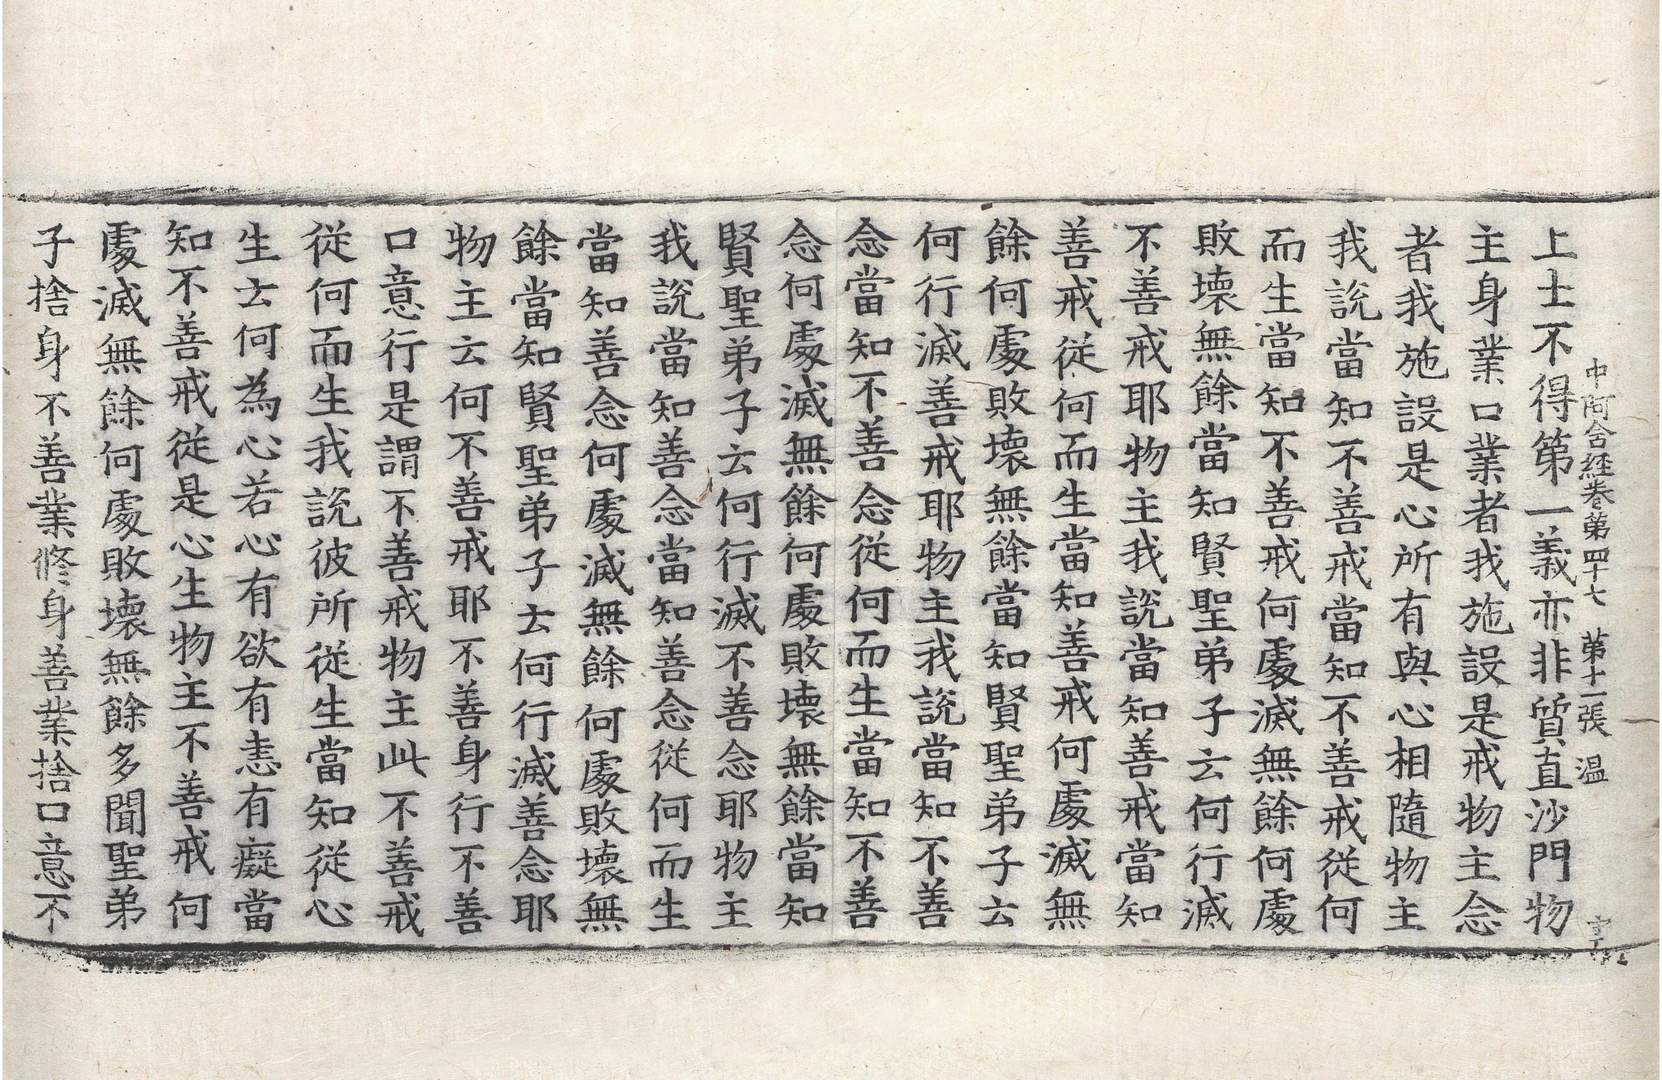 中阿含経卷第四十七 第十一張 温
上士不得第一義亦非質直沙門物
主身業口業者我施設是戒物主念
者我施設是心所有與心相隨物主
我說當知不善戒當知不善戒從何
而生當知不善戒何處滅無餘何處
敗壞無餘當知賢聖弟子云何行滅
不善戒耶物主我說當知善戒當知
善戒從何而生當知善戒何處滅無
餘何處敗壞無餘當知賢聖弟子云
何行滅善戒耶物主我說當知不善
念當知不善念從何而生當知不善
念何處滅無餘何處敗壞無餘當知
賢聖弟子云何行滅不善念耶物主
我說當知善念當知善念從何而生
當知善念何處滅無餘何處敗壞無
餘當知賢聖弟子云何行滅善念耶
物主云何不善戒耶不善身行不善
口意行是謂不善戒物主此不善戒
從何而生我說彼所從生當知從心
生云何為心若心有欲有恚有癡當
知不善戒從是心生物主不善戒何
處滅無餘何處敗壞無餘多聞聖弟
子捨身不善業修身善業捨口意不